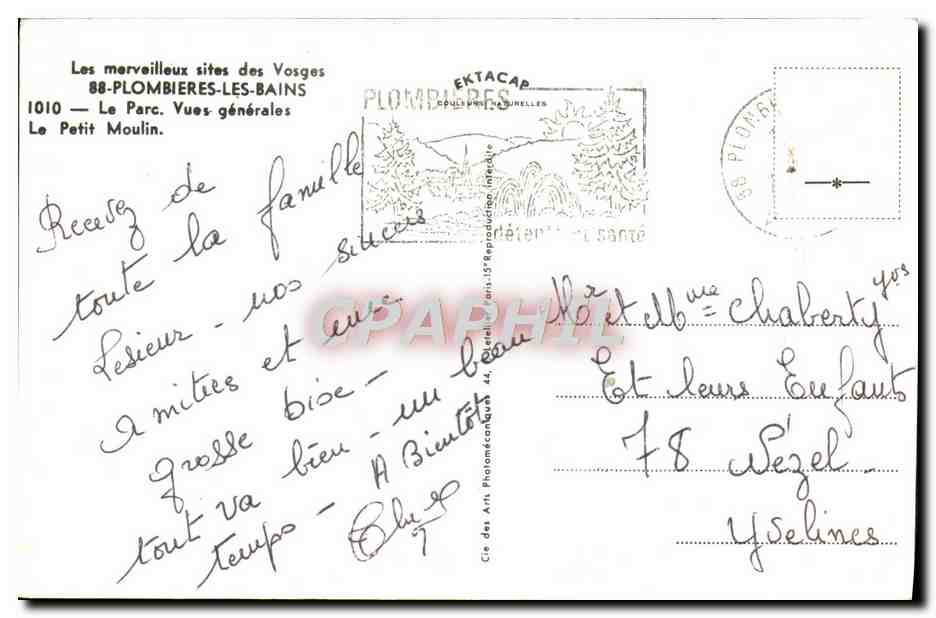 Les merveilleux sites des Vosges
88-PLOMBIERES-LES-BAINS
1010 — Le Parc. Vues générales
Le Petit Moulin.
EKTACAP
COULEURS NATURELLES
PLOMBIERES
détente et santé
88 PLOMB
—*—
Recevez de
toute la famille
Lesieur - nos sincères
amitiés et une
grosse bise -
tout va bien - un beau
temps - A Bientôt
CPAPHIL
Cie des Arts Photomécaniques 44, Letellier Paris-15e Reproduction interdite
Mr et Mme Chaberty yvs
Et leurs Enfants
78 Vézel.
Yvelines